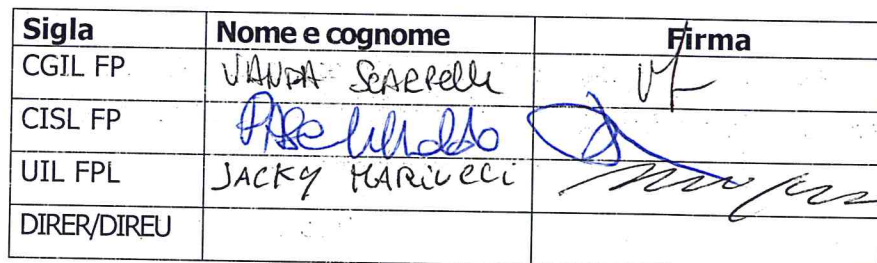 Sigla Nome e cognome Firma
CGIL FP VANDA SCARPELLI
CISL FP
UIL FPL JACKY MARIUCCI
DIRER/DIREU